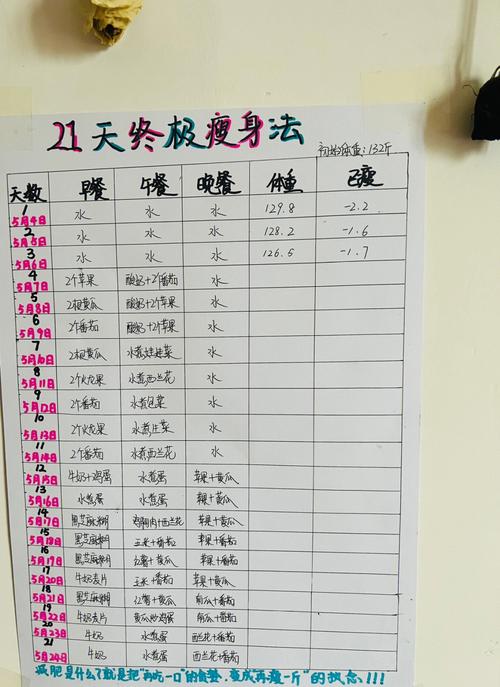 21天终极瘦身法
初始体重:132斤
天数 早餐 午餐 晚餐 体重 已瘦
1 5月4日 水 水 水 129.8 -2.2
2 5月5日 水 水 水 128.2 -1.6
3 5月6日 水 水 水 126.5 -1.7
4 5月7日 2个苹果 酸奶+2个番茄 水
5 5月8日 2根黄瓜 酸奶+2个苹果 水
6 5月9日 2个番茄 酸奶+2个苹果 水
7 5月10日 2根黄瓜 水煮娃娃菜 水
8 5月11日 2个火龙果 水煮西兰花 水
9 5月12日 2个番茄 水煮包菜 水
10 5月13日 2个火龙果 水煮生菜 水
11 5月14日 2个番茄 水煮西兰花 水
12 5月15日 牛奶+鸡蛋 水煮蛋 苹果+黄瓜
13 5月16日 水煮蛋 水煮蛋 苹果+黄瓜
14 5月17日 黑芝麻糊 鸡胸肉+西兰花 苹果+黄瓜
15 5月18日 黑芝麻糊 玉米+番茄 苹果+番茄
16 5月19日 黑芝麻糊 红薯+黄瓜 苹果+番茄
17 5月20日 牛奶麦片 玉米+番茄 苹果+黄瓜
18 5月21日 黑芝麻糊 红薯+黄瓜 南瓜+番茄
19 5月22日 牛奶麦片 黄瓜炒鸡蛋 南瓜+番茄
20 5月23日 牛奶 水煮蛋 西兰花+番茄
21 5月24日 牛奶 水煮蛋 西兰花+番茄
减肥是什么?就是把"再吃一口"的贪婪,变成"再瘦一斤"的执念!!!